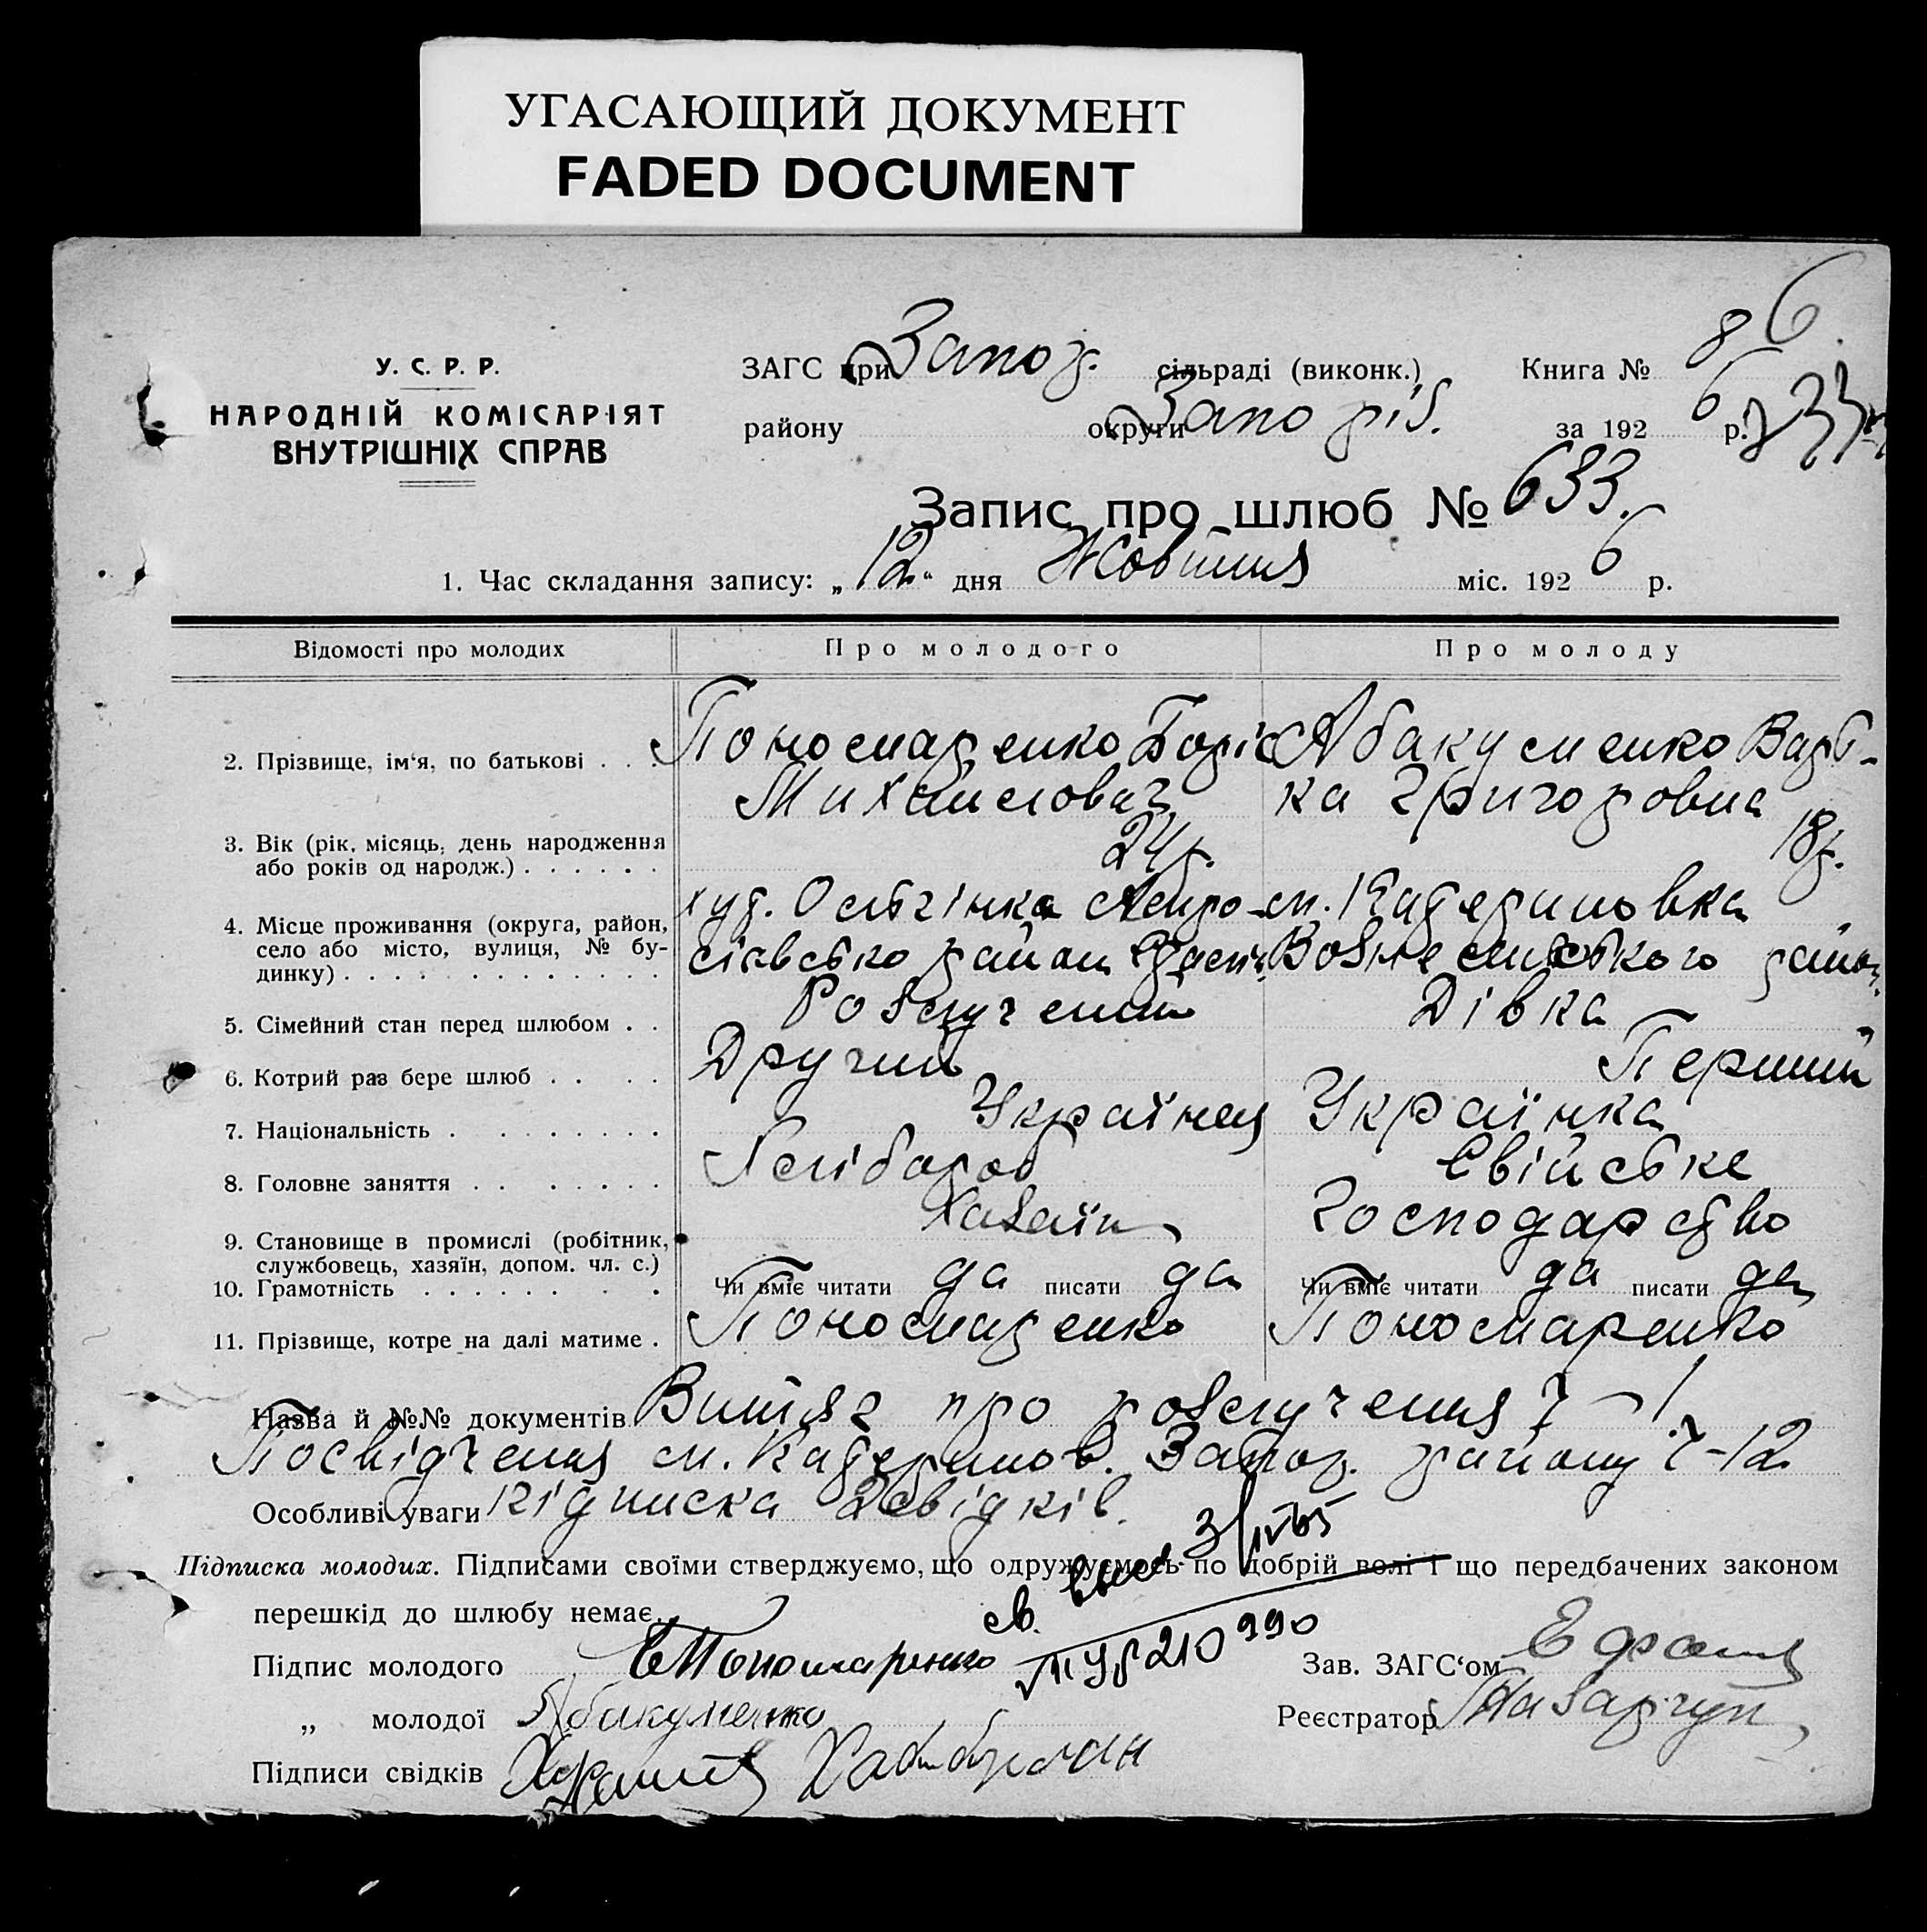 УГАСАЮЩИЙ ДОКУМЕНТ
FADED DOCUMENT
У. С. Р. Р.
НАРОДНІЙ КОМІСАРІЯТ
ВНУТРІШНІХ СПРАВ
ЗАГС при Запор. сільраді (виконк.) Книга № 8 6
району округи Запоріз. за 192 6 р.
Запис про шлюб № 633.
1. Час складання запису: „12“ дня Жовтня міс. 192 6 р.
Відомості про молодих Про молодого Про молоду
2. Прізвище, ім‘я, по батькові . . . Поносмаренко Боріс Абакуменко Варв-
Михайлович ка Григоровна
3. Вік (рік, місяць, день народження
або років од народж.) . . . . . . 24 р. 18 р.
4. Місце проживання (округа, район, хут. м. Катериновка
село або місто, вулиця, № бу- район Вознесенського район.
динку) . . . . . . . . . . . .
5. Сімейний стан перед шлюбом . . Розлучений Дівка
6. Котрий раз бере шлюб . . . . Другий Перший
7. Національність . . . . . . . . Українец Українка
8. Головне заняття . . . . . . . Хлібороб Свійське
Хазаїн Господарство
9. Становище в промислі (робітник,
службовець, хазяїн, допом. чл. с.)
10. Грамотність . . . . . . . . Чи вміє читати да писати да Чи вміє читати да писати да
11. Прізвище, котре на далі матиме . Пономаренко Пономаренко
Назва й №№ документів Витяг про розлучення
Посвідчення с. Катеринов. Запор. району 7-12
Особливі уваги Підписка 2 свідків.
Підписка молодих. Підписами своїми стверджуємо, що одружуємось по добрій волі і що передбачених законом
перешкід до шлюбу немає.
св. 3/IV 65
УБ 210990
Підпис молодого Пономаренко Зав. ЗАГС‘ом
„ молодої Абакуменко Реєстратор Назарчук
Підписи свідків